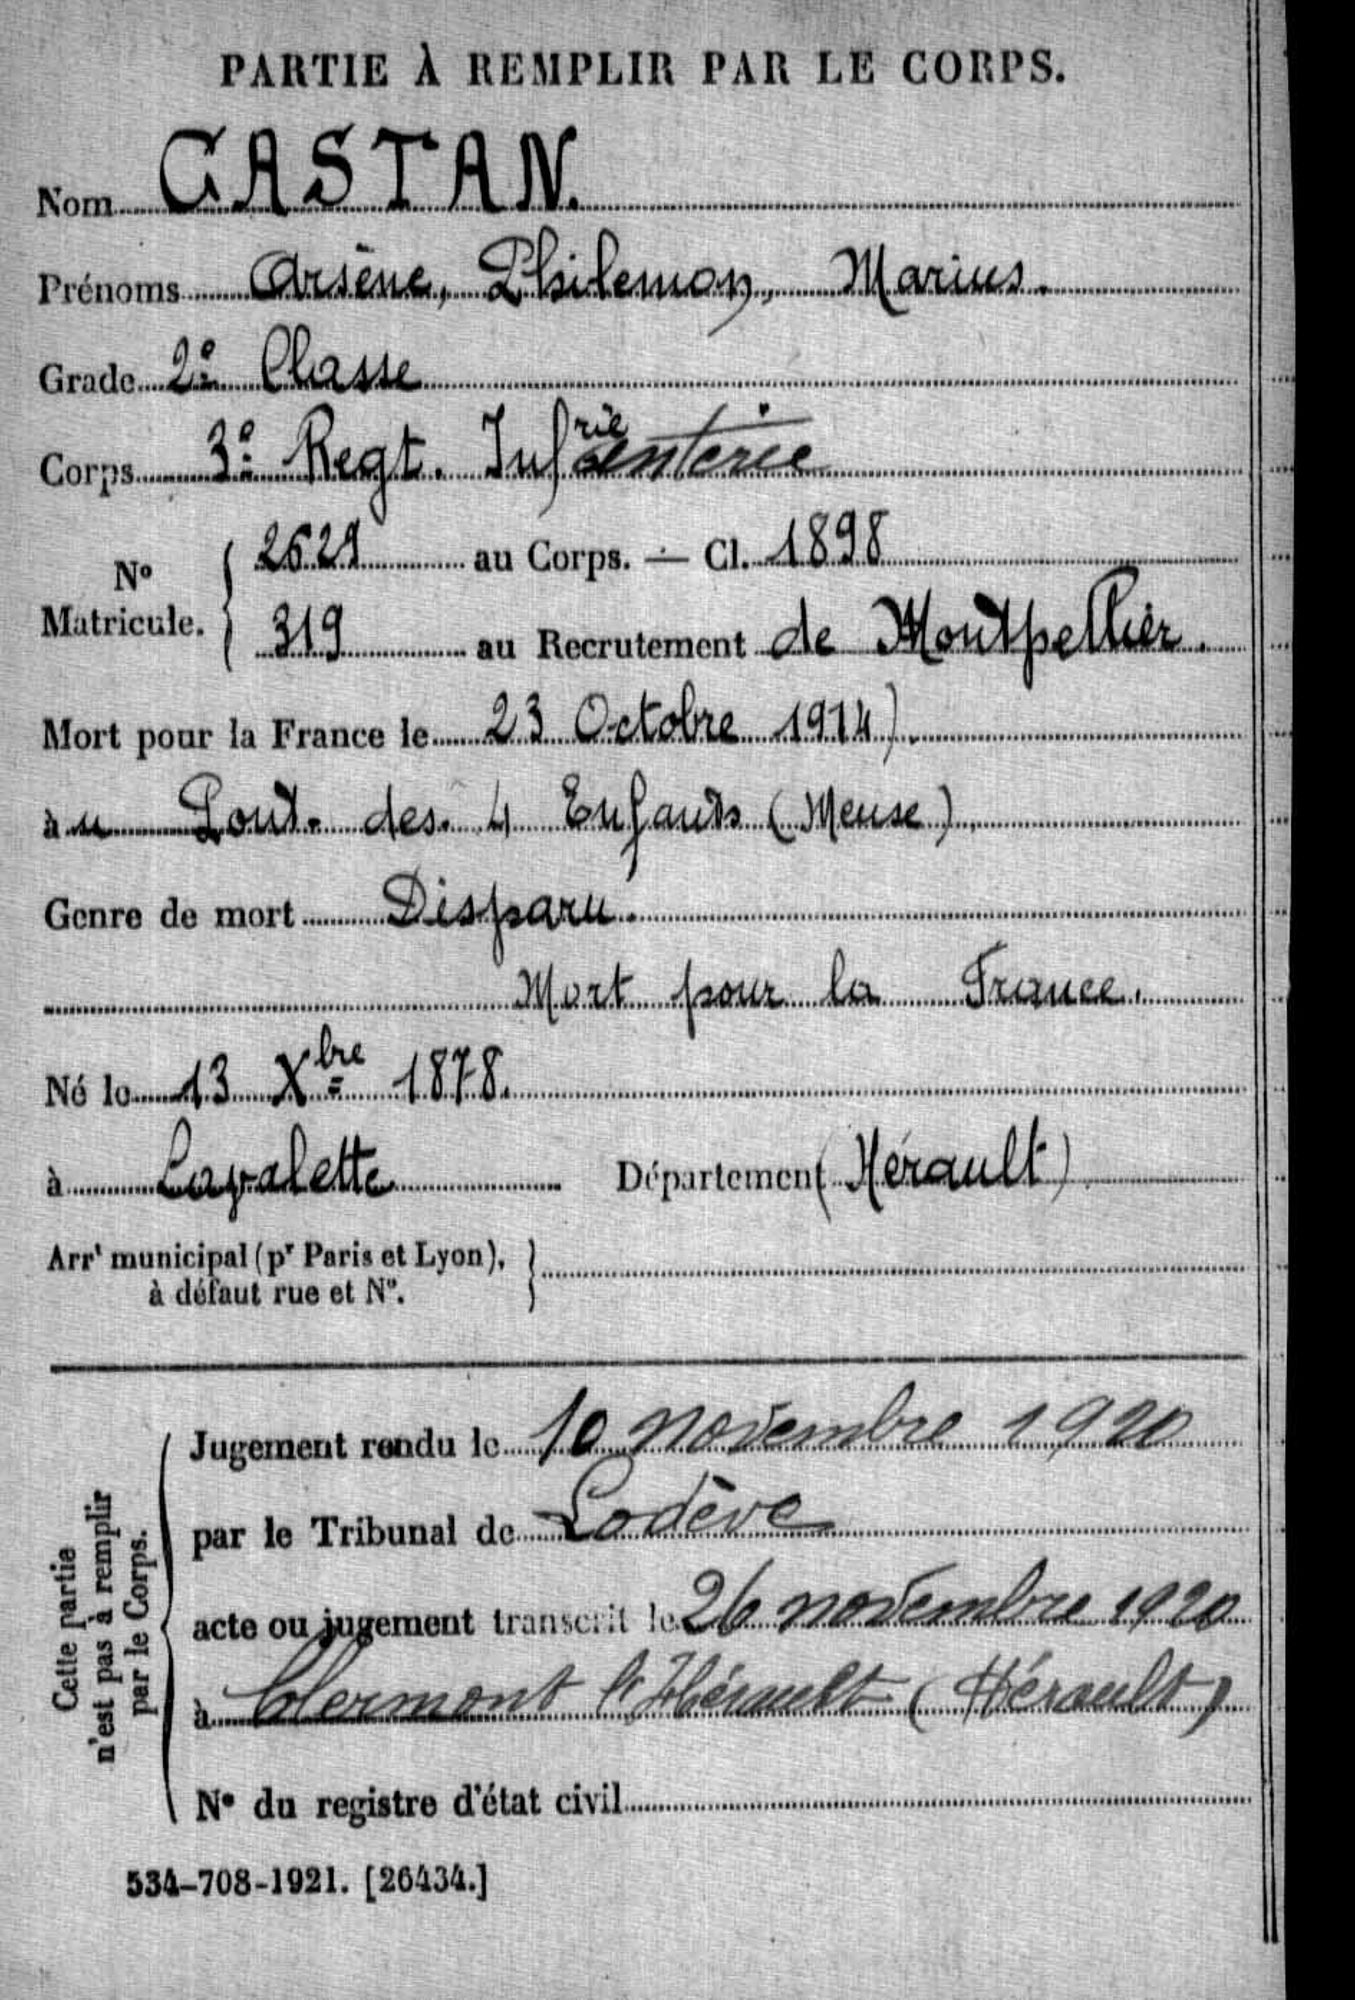 PARTIE À REMPLIR PAR LE CORPS.
Nom CASTAN.
Prénoms Arsène, Philemon, Marius.
Grade 2e Classe
Corps 3e Regt. Infrie anterie
Nº Matricule. { 2629 au Corps. — Cl. 1898
319 au Recrutement de Montpellier.
Mort pour la France le 23 Octobre 1914).
à u Pont. des. 4 Enfants (Meuse)
Genre de mort Disparu.
Mort pour la France.
Né le 13 Xbre 1878.
à Lavalette Département (Hérault)
Arrt municipal (pr Paris et Lyon),
à défaut rue et Nº.
Cette partie n'est pas à remplir par le Corps.
Jugement rendu le 10 novembre 1920
par le Tribunal de Lodève
acte ou jugement transcrit le 26 novembre 1920
à Clermont l'Hérault (Hérault)
Nº du registre d'état civil
534-708-1921. [26434.]